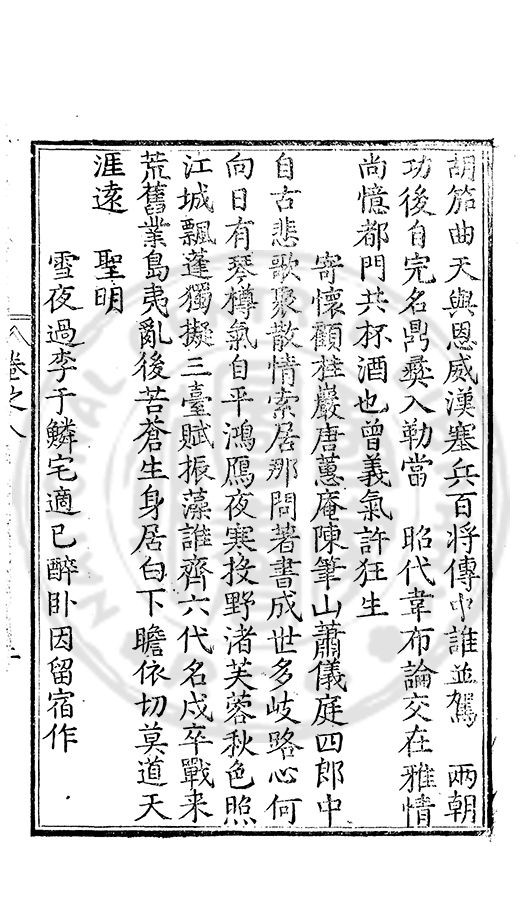 胡笳曲天與恩威漢塞兵百將傳中誰並駕　兩朝
功後自完名鼎彝入勒當　昭代韋布論交在雅情
尚憶都門共杯酒也曾義氣許狂生
寄懷顧桂巖唐蕙庵陳筆山蕭儀庭四郎中
自古悲歌聚散情索居那問著書成世多岐路心何
向日有琴樽氣自平鴻鴈夜寒投野渚芙蓉秋色照
江城飄蓬獨擬三臺賦振藻誰齊六代名戍卒戰来
荒舊業島夷亂後苦蒼生身居白下瞻依切莫道天
涯遠　聖明
雪夜過李于鱗宅適已醉卧因留宿作
卷之八